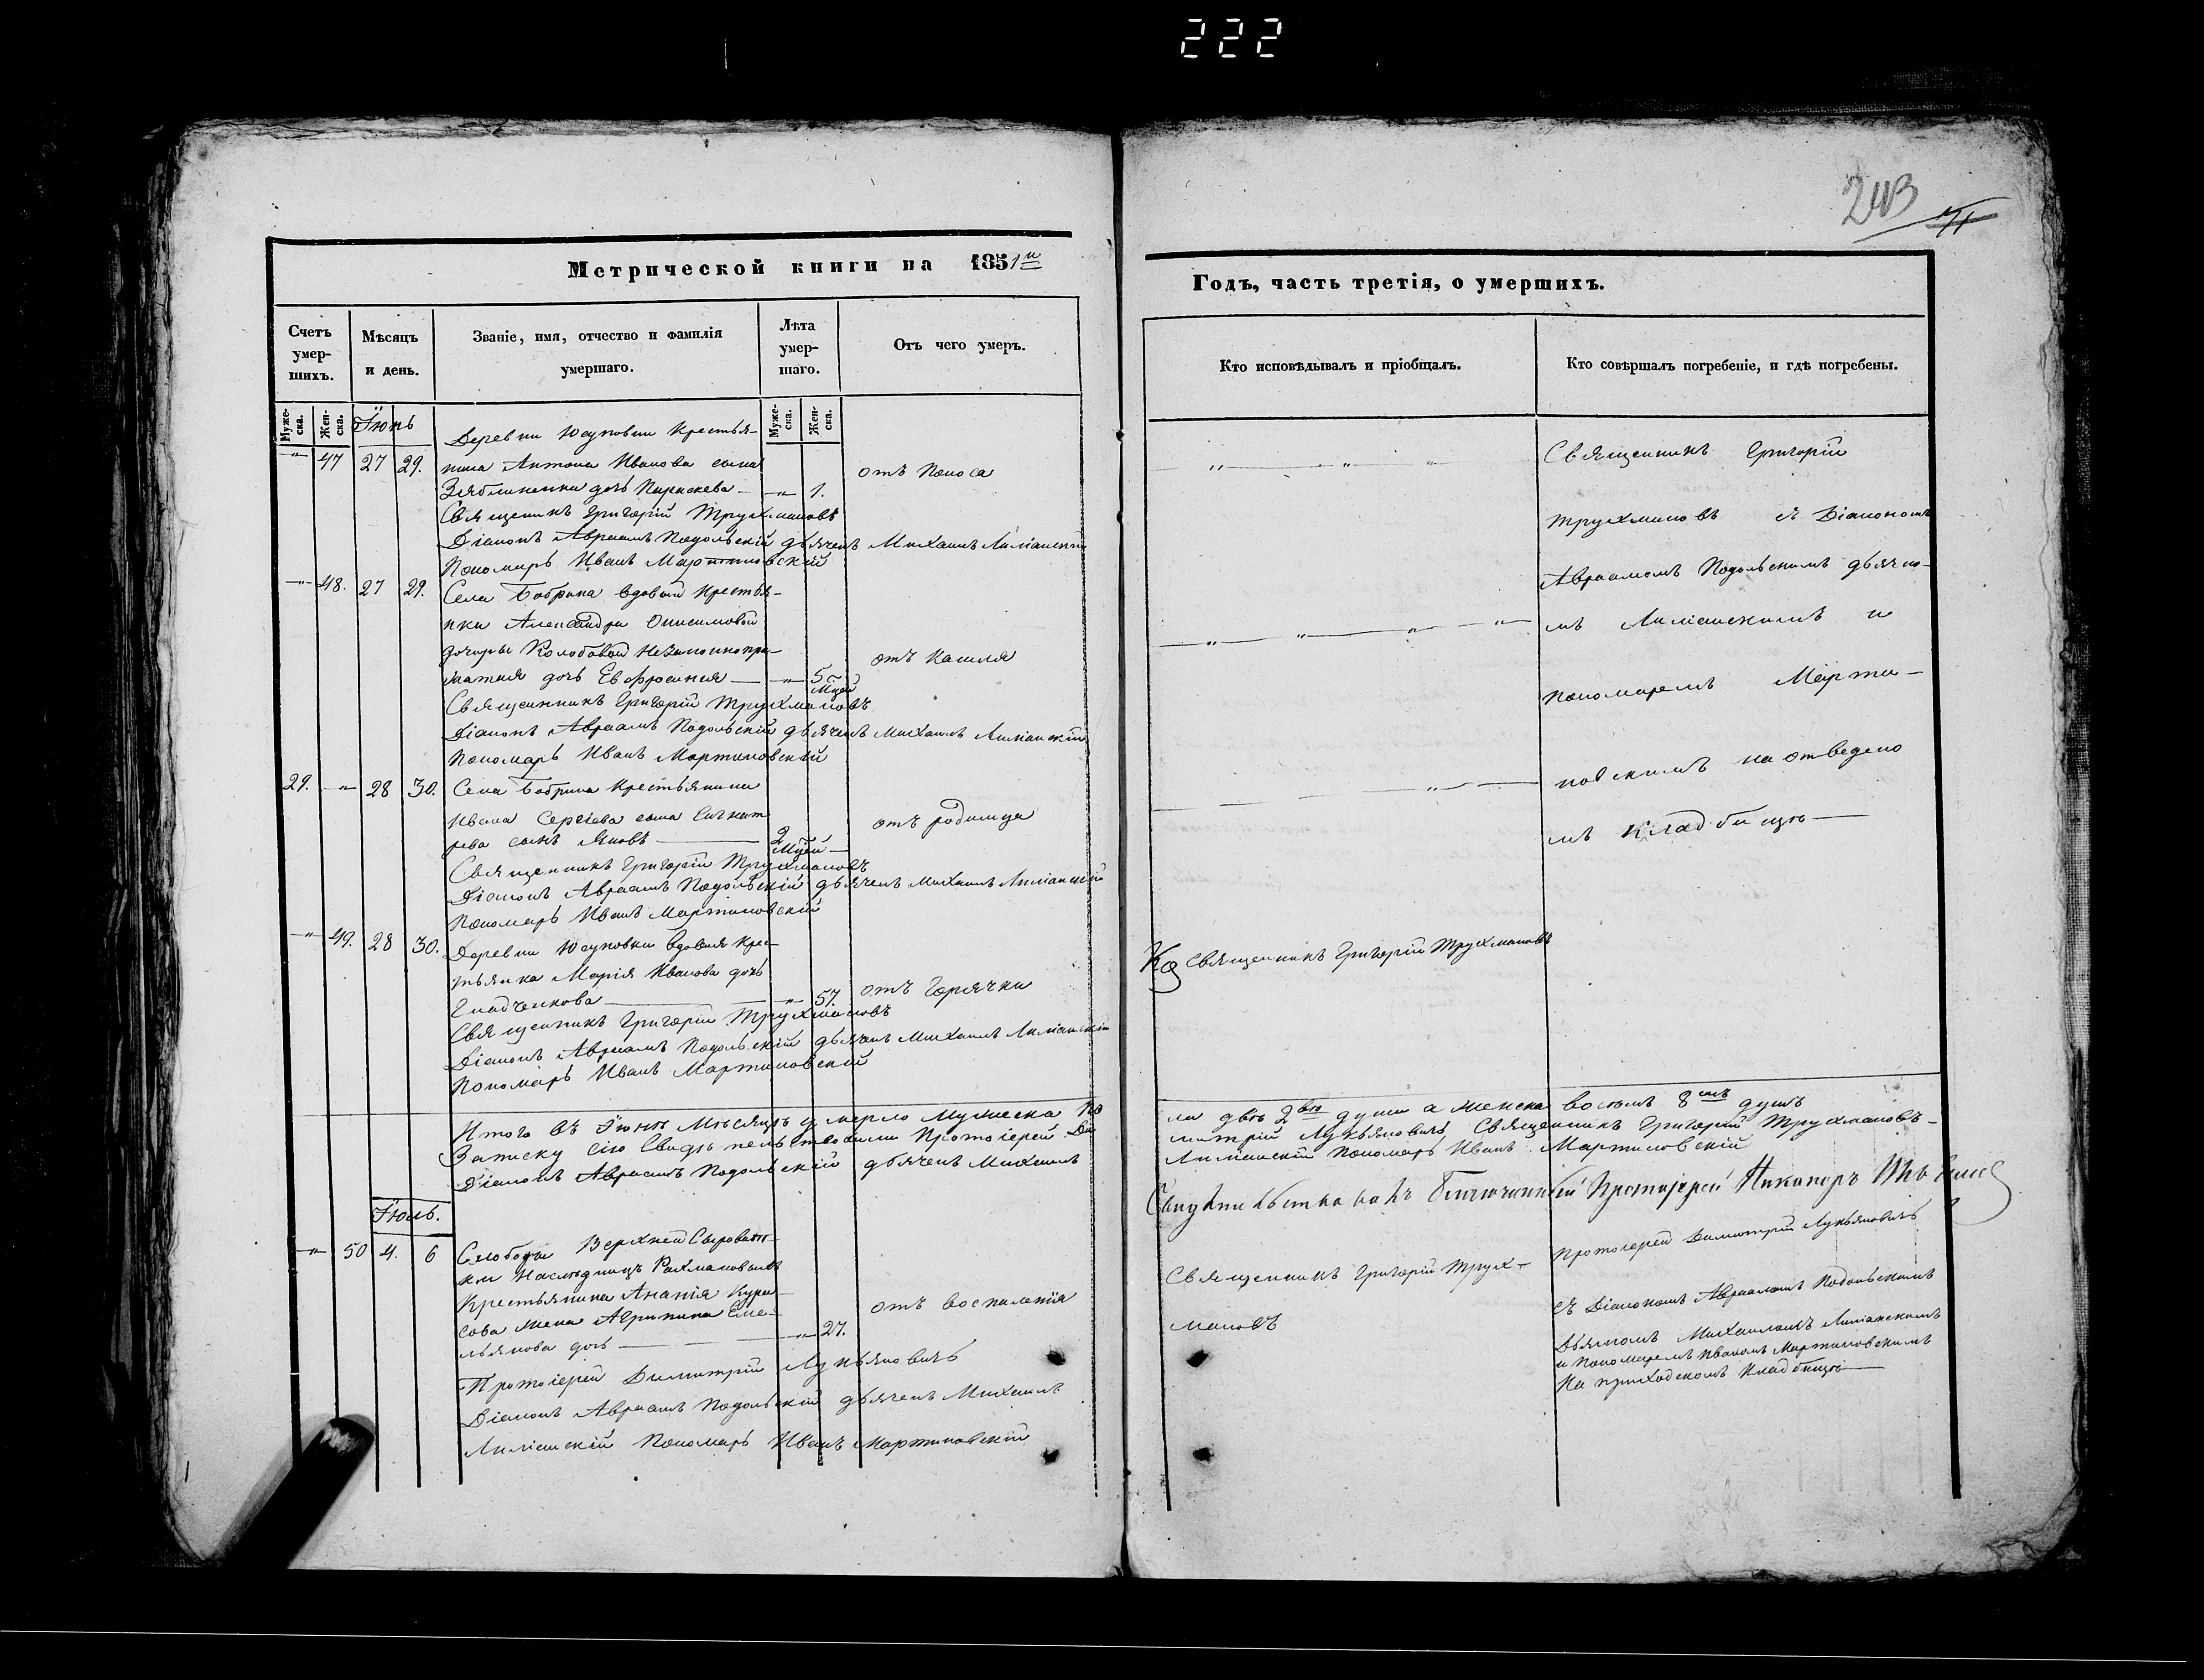 222
243
Метрической книги на 1851й
Счетъ умер-шихъ.
Мѣсяцъ и день.
Званіе, имя, отчество и фамилія умершаго.
Лѣта умер-шаго.
Отъ чего умеръ.
Муже-ска.
Жен-ска.
Іюнь
Муже-ска.
Жен-ска.
Деревни Юсуповки крестья-
" 47 27 29. нина Антона Иванова сына отъ поноса
дочь Параскева — " 1.
Священникъ Григорій Трухмановъ
Діаконъ Авраамъ Подольскій дьячекъ Михаилъ
Пономарь Иванъ Мартиновскій
" 48. 27 29. Села Бобрика вдовой крестья-
нки Александры Онисимовой
дочери незаконнопри-
житая дочь Евфросинія — " 5 мцей отъ кашля
Священникъ Григорій Трухмановъ
Діаконъ Авраамъ Подольскій дьячекъ Михаилъ
Пономарь Иванъ Мартиновскій
29. " 28 30. Села Бобрика крестьянина
Ивана Сергіева сына отъ родимца
сынъ Яковъ — 2 мцей —
Священникъ Григорій Трухмановъ
Діаконъ Авраамъ Подольскій дьячекъ Михаилъ
Пономарь Иванъ Мартиновскій
" 49. 28 30. Деревни Юсуповки вдовая крес-
тьянка Марія Иванова дочь
Гладченкова — " 57. отъ горячки
Священникъ Григорій Трухмановъ
Діаконъ Авраамъ Подольскій дьячекъ Михаилъ
Пономарь Иванъ Мартиновскій
Итого въ Іюнѣ мѣсяцѣ умерло мужеска по
Записку сію свидѣтельствовали Протоіерей Ди
Діаконъ Авраамъ Подольскій дьячекъ Михаилъ
Іюль.
" 50 4. 6 Слободы Верхней Сыроват-
ки
крестьянина Ананія
жена Агрипина Еме- отъ воспаленія
льянова дочь — " 27.
Протоіерей Димитрій Лукьяновичъ
Діаконъ Авраамъ Подольскій дьячекъ Михаилъ
Пономарь Иванъ Мартиновскій
Годъ, часть третія, о умершихъ.
Кто исповѣдывалъ и пріобщалъ.
Кто совѣршалъ погребеніе, и гдѣ погребены.
Священникъ Григорій
Трухмановъ съ Діакономъ
Авраамомъ Подольскимъ дьячко-
мъ и
пономаремъ Марти-
новскимъ на отведено
мъ кладбищѣ —
Священникъ Григорій Трухмановъ
ла двѣ 2вѣ души а женска восемь 8мь душъ
митрій Лукьяновичъ Священникъ Григорій Трухмановъ
Пономарь Иванъ Мартиновскій
Благочинный Протоіерей Никаноръ
Священникъ Григорій Трух-
мановъ
Протоіерей Димитрій Лукьяновичъ
съ Діакономъ Авраамомъ Подольскимъ
Дьячкомъ Михаиломъ
и Пономаремъ Иваномъ Мартиновскимъ
на приходскомъ кладбищѣ —